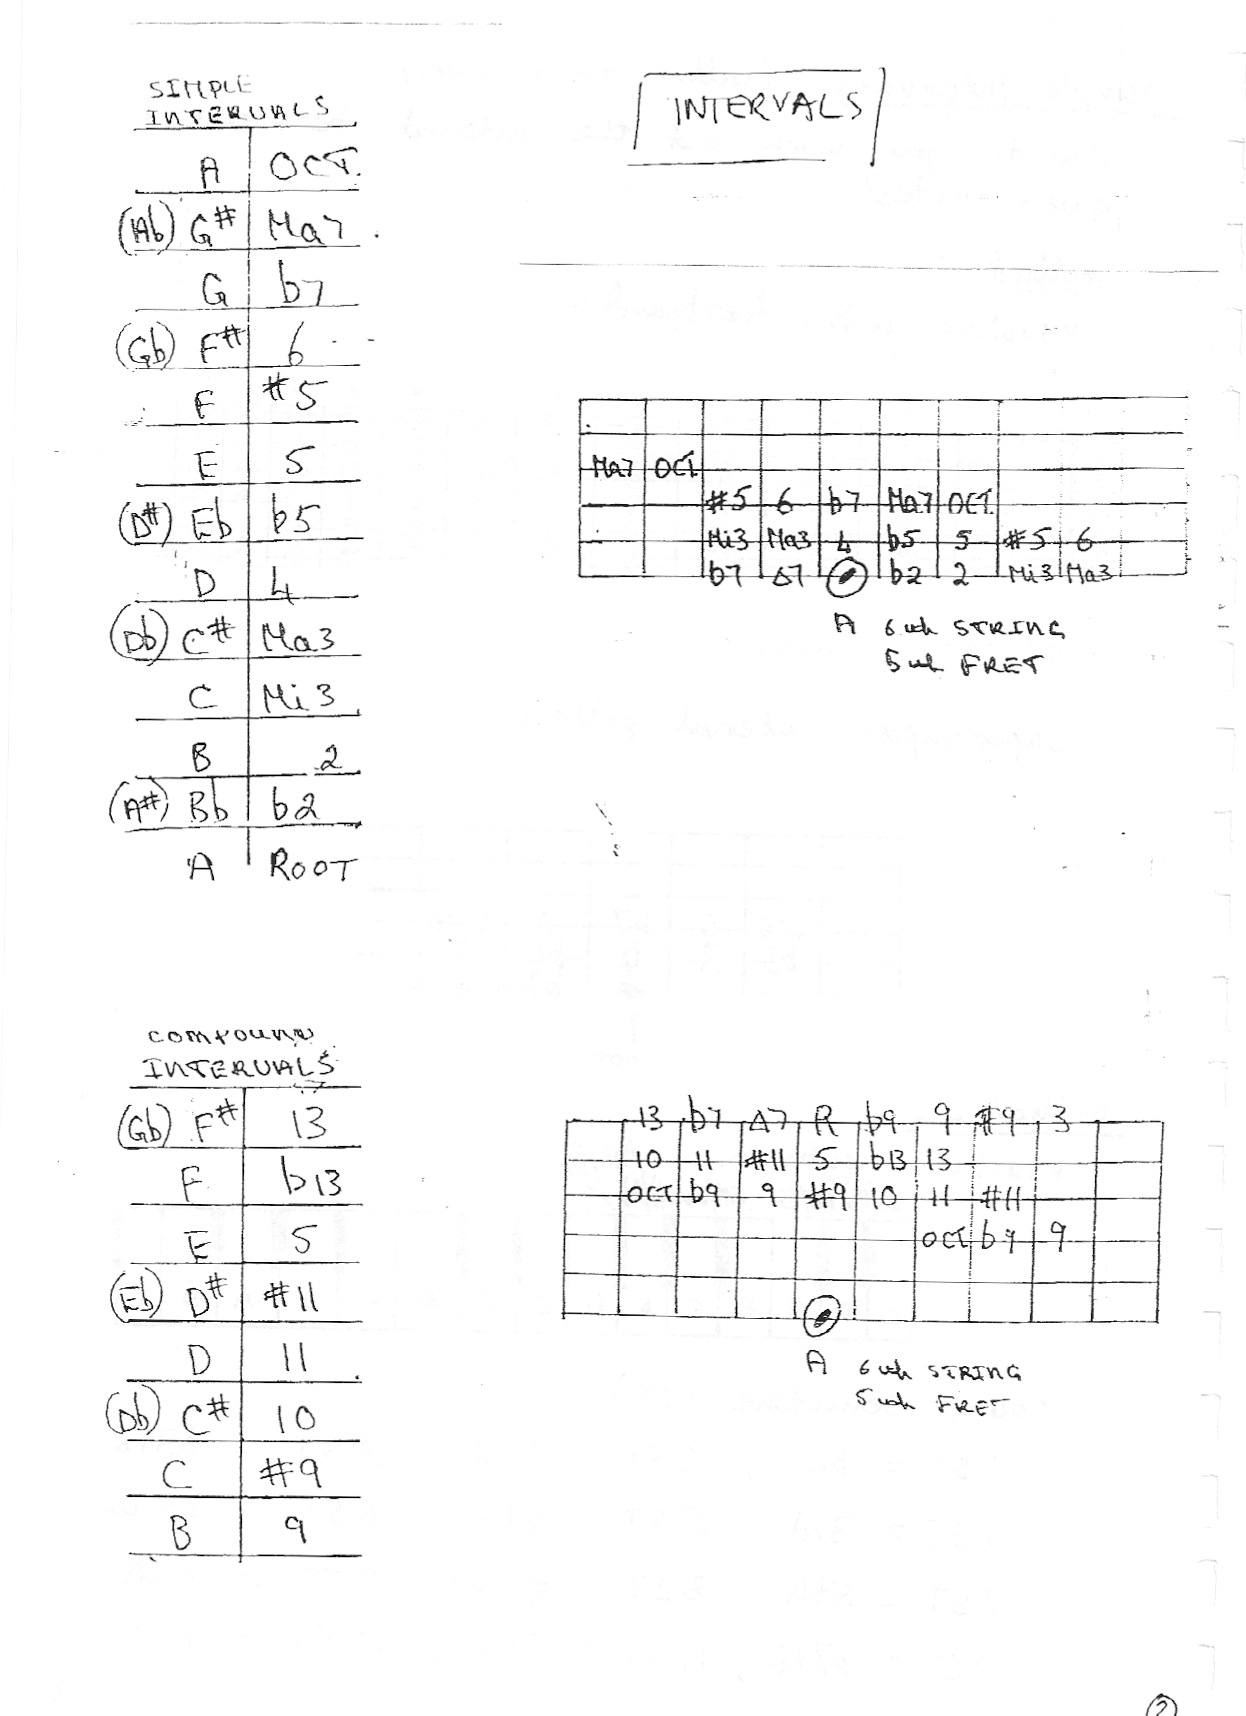 SIMPLE
INTERVALS
INTERVALS
A OCT.
(Ab) G# Ma7
G b7
(Gb) F# 6
F #5
E 5
(D#) Eb b5
D 4
(Db) C# Ma3
C Mi3
B 2
(A#) Bb b2
A ROOT
Ma7 OCT.
#5 6 b7 Ma7 OCT.
Mi3 Ma3 4 b5 5 #5 6
b7 Δ7 b2 2 Mi3 Ma3
A 6th STRING
5th FRET
COMPOUND
INTERVALS
(Gb) F# 13
F b13
E 5
(Eb) D# #11
D 11
(Db) C# 10
C #9
B 9
13 b7 Δ7 R b9 9 #9 3
10 11 #11 5 b13 13
OCT b9 9 #9 10 11 #11
OCT. b9 9
A 6th STRING
5th FRET
2